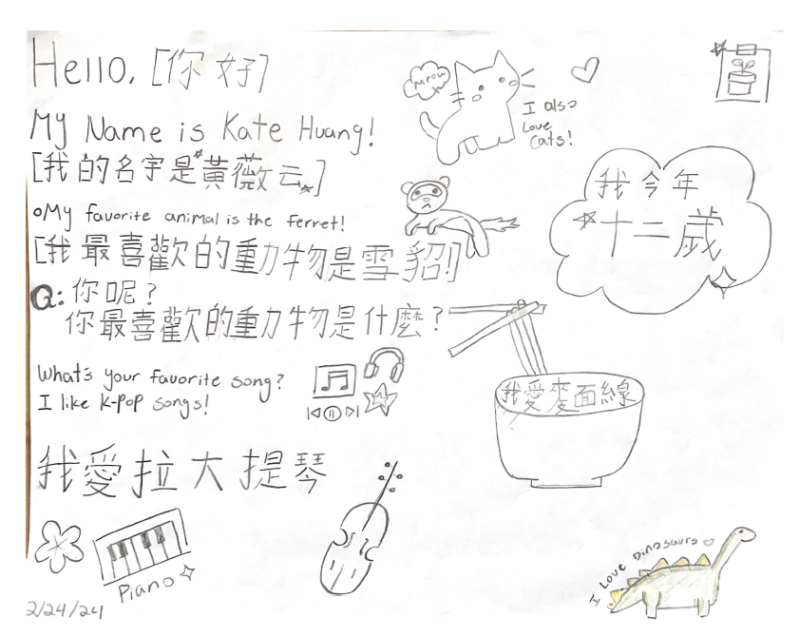 Hello, [你好]
meow
My Name is Kate Huang!
[我的名字是黃薇云]
I also
Love
cats!
oMy favorite animal is the ferret!
[我最喜歡的動物是雪貂!]
我今年
十二歲
Q: 你呢?
你最喜歡的動物是什麼?
What's your favorite song?
I like K-POP songs!
我愛麥面線
我愛拉大提琴
Piano
I Love Dinosaurs
2/24/24